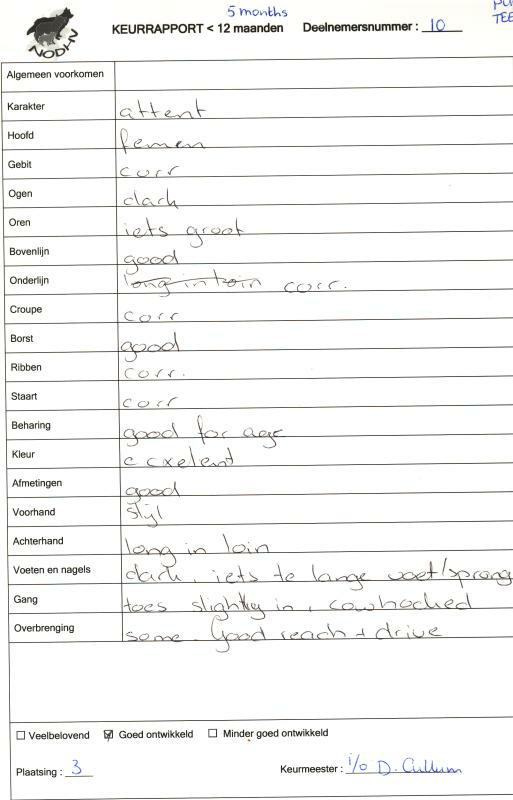 5 months
PU
TEE
NODHN
KEURRAPPORT < 12 maanden Deelnemersnummer : 10
Algemeen voorkomen
Karakter attent
Hoofd femen
Gebit corr
Ogen dark
Oren iets groot
Bovenlijn good
Onderlijn long in loin corr.
Croupe corr
Borst good
Ribben corr.
Staart corr
Beharing good for age
Kleur ecxelent
Afmetingen good
Voorhand stijl
Achterhand long in loin
Voeten en nagels dark, iets te lange voet/sprong
Gang toes slightly in, cowhocked
Overbrenging some. Good reach + drive
Veelbelovend Goed ontwikkeld Minder goed ontwikkeld
Plaatsing : 3 Keurmeester : i/o D. Cullum